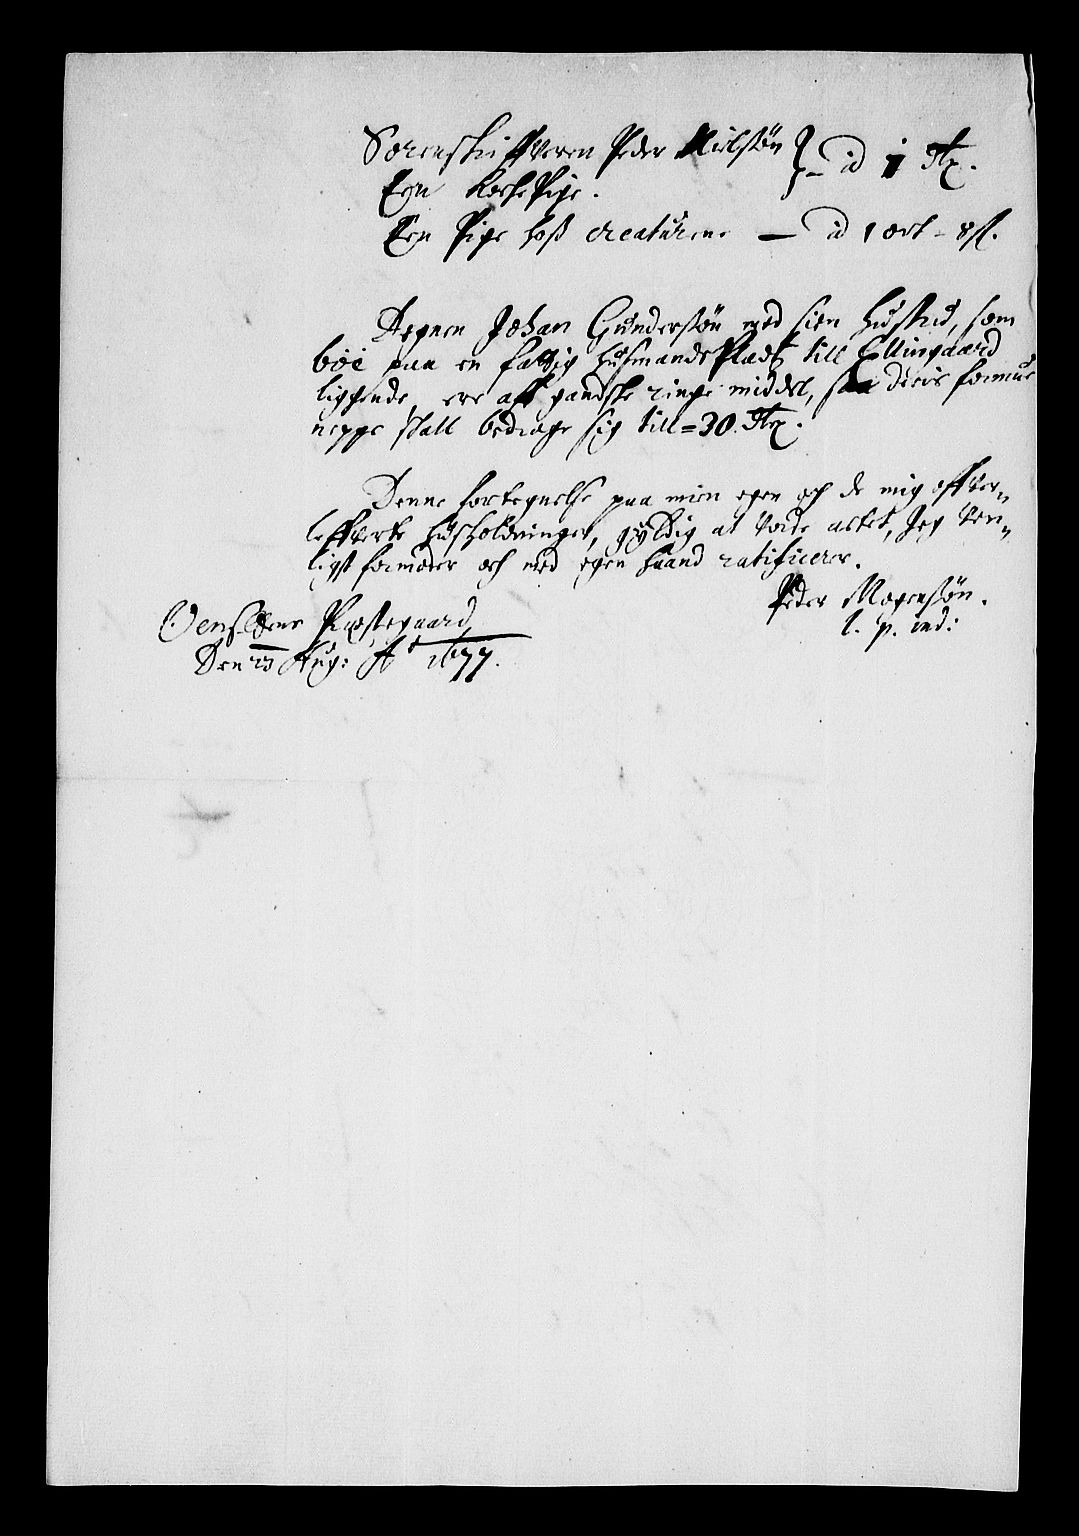 Sorenskriffveren Peder Nielsøn } - id 1 Rdr.
Een KockePige.
Een Pige hoß creaturene — id 1 ort - 8 ß.
Degnen Johan Gundersøn med sien Hustrud, som
boe paa en fattig Husmands Plads till Ellingaard
liggende, ere aff gandske ringe middel, saa deris formue
neppe skall bedrage sig till = 30. Rdr.
Denne fortegnelse paa mien egen och de mig offver-
leffverte Husholdninger, gyldig at vorde actet, Jeg ven-
ligst formoder och med egen haand ratificerer.
Peder Mogensøn.
l. p. ind:
Præstegaard
Den 23 Aug: Aº 1677.